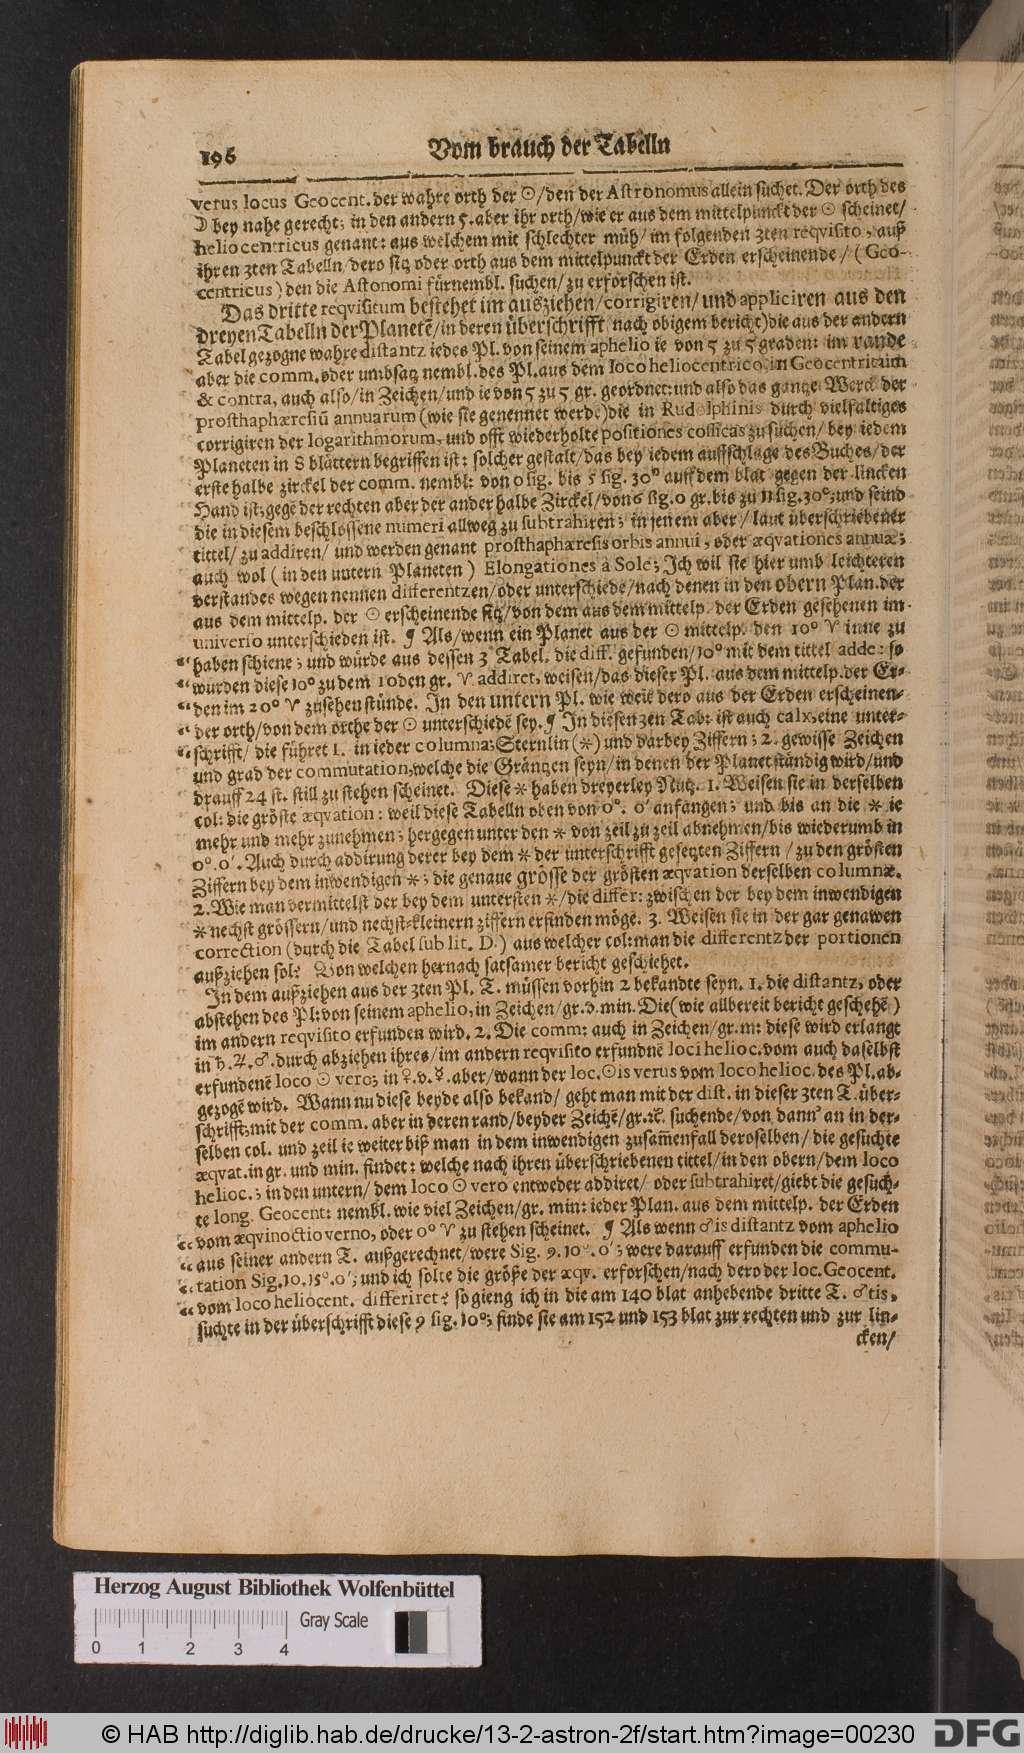 196 Vom brauch der Tabelln
verus locus Geocent. der wahre orth der ☉/den der Astronomus allein suchet. Der orth des
☽ bey nahe gerecht; in den andern 5. aber ihr orth/wie er aus dem mittelpunckt der ☉ scheinet/
heliocentricus genant: aus welchem mit schlechter müh/ im folgenden 3ten reqvisito, auß
ihren 3ten Tabelln/dero sitz oder orth aus dem mittelpunckt der Erden erscheinende/ (Geo-
centricus) den die Astonomi fürnembl. suchen/zu erforschen ist.
Das dritte reqvisitum bestehet im ausziehen/corrigiren/ und appliciren aus den
dreyen Tabelln der Planetẽ/in deren überschrifft nach obigem bericht) die aus der andern
Tabel gezogne wahre distantz iedes Pl. von seinem aphelio ie von 5 zu 5 graden: im rande
aber die comm. oder umbsatz nembl. des Pl. aus dem loco heliocentrico, in Geocentricum
& contra, auch also/in Zeichen/und ie von 5 zu 5 gr. geordnet: und also das gantze Werck der
prosthaphæresiũ annuarum (wie sie genennet werdẽ) die in Rudolphinis durch vielfaltiges
corrigiren der logarithmorum, und offt wiederholte positiones cossicas zu suchen/ bey iedem
Planeten in 8 blättern begriffen ist: solcher gestalt/das bey iedem auffschlage des Buches/der
erste halbe zirckel der comm. nembl: von 0 sig. bis 5 sig. 30° auff dem blat gegen der lincken
Hand ist; gegẽ der rechten aber der ander halbe Zirckel/von 6 sig. 0 gr. bis zu 11 sig. 30°; und seind
die in diesem beschlossene numeri allweg zu subtrahiren; in jenem aber/ laut überschriebener
tittel/ zu addiren/ und werden genant prosthaphæresis orbis annui, oder æqvationes annuæ;
auch wol (in den untern Planeten) Elongationes à Sole; Ich wil sie hier umb leichteren
verstandes wegen nennen differentzen/oder unterschiede/nach denen in den obern Plan. der
aus dem mittelp. der ☉ erscheinende sitz/von dem aus dem mittelp. der Erden gesehenen im
universo unterschieden ist. ¶ Als/wenn ein Planet aus der ☉ mittelp. den 10° ♈ inne zu
„ haben schiene; und würde aus dessen 3 Tabel. die diff. gefunden/10° mit dem tittel adde: so
„ würden diese 10° zu dem 10den gr. ♈ addiret, weisen/das dieser Pl. aus dem mittelp. der Er-
„ den im 20° ♈ zusehen stünde. In den untern Pl. wie weit dero aus der Erden erscheinen-
„ der orth/von dem orthe der ☉ unterschiedẽ sey. ¶ In diesen 3en Tab: ist auch calx, eine unter-
„ schrifft/ die führet 1. in ieder columna; Sternlin (*) und darbey Ziffern; 2. gewisse Zeichen
und grad der commutation, welche die Gräntzen seyn/in denen der Planet ständig wird/und
drauff 24 st. still zu stehen scheinet. Diese * haben dreyerley Nutz. 1. Weisen sie in derselben
col: die gröste æqvation: weil diese Tabelln oben von 0°. 0′ anfangen; und bis an die * ie
mehr und mehr zunehmen; hergegen unter den * von zeil zu zeil abnehmen/bis wiederumb in
0°. 0′. Auch durch addirung derer bey dem * der unterschrifft gesetzten Ziffern / zu den grösten
Ziffern bey dem inwendigen *; die genaue grösse der grösten æqvation derselben columnæ.
2. Wie man vermittelst der bey dem untersten */die differ: zwischen der bey dem inwendigen
* nechst grössern/und nechst-kleinern ziffern erfinden möge. 3. Weisen sie in der gar genawen
correction (durch die Tabel sub lit. D.) aus welcher col: man die differentz der portionen
außziehen sol: Von welchen hernach satsamer bericht geschiehet.
In dem außziehen aus der 3ten Pl. T. müssen vorhin 2 bekandte seyn. 1. die distantz, oder
abstehen des Pl: von seinem aphelio, in Zeichen/gr. v. min. Die (wie allbereit bericht geschehẽ)
im andern reqvisito erfunden wird. 2. Die comm: auch in Zeichen/gr. m: diese wird erlangt
in ♄. ♃. ♂. durch abziehen ihres/im andern reqvisito erfundnẽ loci helioc. vom auch daselbst
erfundenẽ loco ☉ vero; in ♀. v. ☿. aber/wann der loc. ☉is verus vom loco helioc. des Pl. ab-
gezogẽ wird. Wann nu diese beyde also bekand/ geht man mit der dist. in dieser 3ten T. über-
schrifft; mit der comm. aber in deren rand/beyder Zeichẽ/gr. ꝛc. suchende/von dann an in der-
selben col. und zeil ie weiter biß man in dem inwendigen zusam̃enfall deroselben/ die gesuchte
æqvat. in gr. und min. findet: welche nach ihren überschriebenen tittel/in den obern/dem loco
helioc.; in den untern/ dem loco ☉ vero entweder addiret/ oder subtrahiret/giebt die gesuch-
te long. Geocent: nembl. wie viel Zeichen/gr. min: ieder Plan. aus dem mittelp. der Erden
„ vom æqvinoctio verno, oder 0° ♈ zu stehen scheinet. ¶ Als wenn ♂is distantz vom aphelio
„ aus seiner andern T. außgerechnet/were Sig. 9. 10°. 0′; were darauff erfunden die commu-
„ tation Sig. 10. 15°. 0′; und ich solte die größe der æqv. erforschen/nach dero der loc. Geocent.
„ vom loco heliocent. differiret: so gieng ich in die am 140 blat anhebende dritte T. ♂tis,
suchte in der überschrifft diese 9 sig. 10°; finde sie am 152 und 153 blat zur rechten und zur lin-
cken/
Herzog August Bibliothek Wolfenbüttel
Gray Scale
0 1 2 3 4
© HAB http://diglib.hab.de/drucke/13-2-astron-2f/start.htm?image=00230 DFG